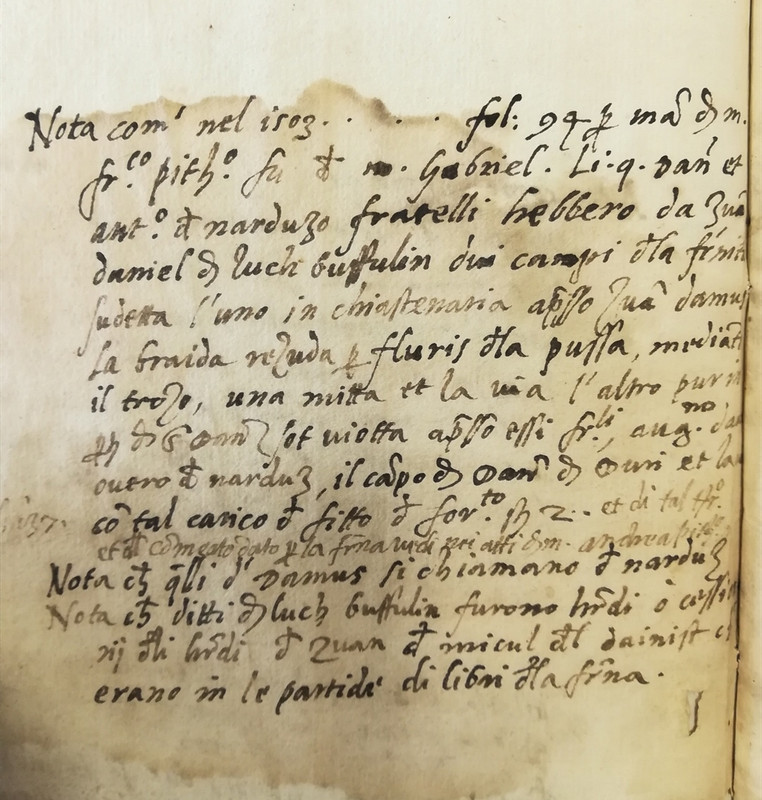 Nota com' nel 1503. . . . . fol: 94 p̱ mãn di m.
fr.co pith.o fu đ m. Gabriel. Li. q. Dañ et
ant.o đ narduzo fratelli hebbero da Zuã
daniel di luch buffulin dui campi đla frńit
sudetta l'uno in chiastenaria ap̃sso Zuã damus
la braida rezuda p̱ fluris đla pussa, mediãt
il trozo, una mitta et la via l'altro pur in
sot viotta ap̃sso essi fr.li, aug.no da
overo đ narduz, il cãpo di Dañ di Duri et la
cõ tal carico đ fitto đ for.to 2.. et di tal
et p̱ la fr̃na vidi nei atti di m. andrea
Nota ch̃ q̃lli d' Damus si chiamano đ narduz
Nota ch̃ ditti di luch buffulin furono hr̃di ò cessio
nij đli hr̃di đ Zuan đ micul đl dainist
erano in le partide di libri đla fr̃na.